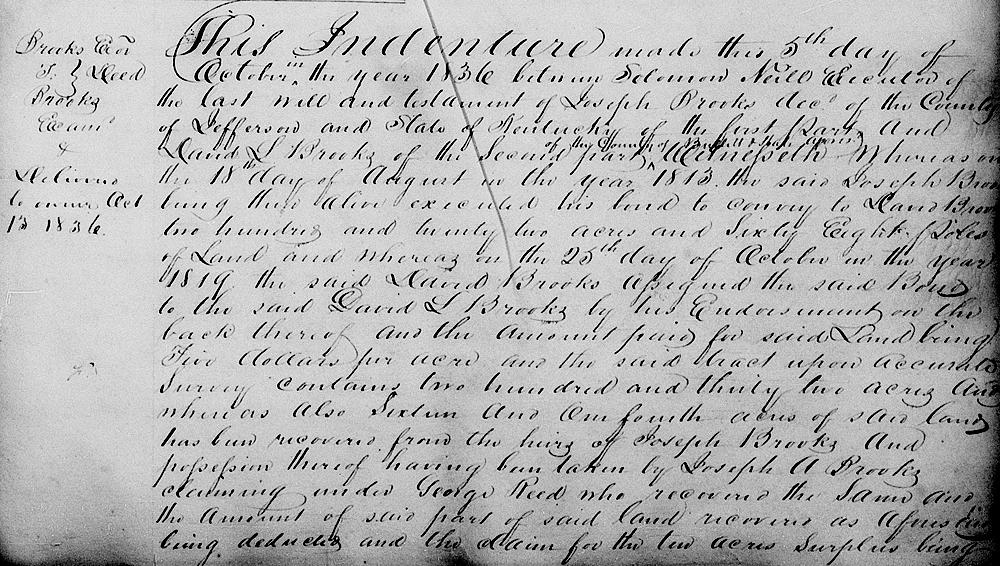 Brooks Exor
To } Deed
Brooks
Examd
&
Delivered
to owner Oct
13 1836.
This Indenture made this 5th day of
October in the year 1836 between Solomon Neill Executor of
the last will and testament of Joseph Brooks decd of the County
of Jefferson and State of Kentucky of the first part, And
of the County of Bullitt & State aforesd
David L Brooks of the Second part, Witnesseth Whereas on
the 18th day of August in the year 1813. the said Joseph Brooks
being then alive executed his bond to convey to David Brooks
two hundred and twenty two acres and Sixty Eight Poles
of Land and whereas on the 25th day of October in the year
1819 the said David Brooks assigned the said Bond
to the said David L Brooks by his Endorsement on the
back thereof and the amount paid for said Land being
Five dollars per acre and the said tract upon accurate
Survey contains two hundred and thirty two acres And
whereas also Sixteen And One fourth acres of said land
has been recovered from the heirs of Joseph Brooks And
possession thereof having been taken by Joseph A Brooks
claiming under George Reed who recovered the Same and
the Amount of said part of said land recovered as Aforesaid
being deducted and the Claim for the ten acres Surplus being